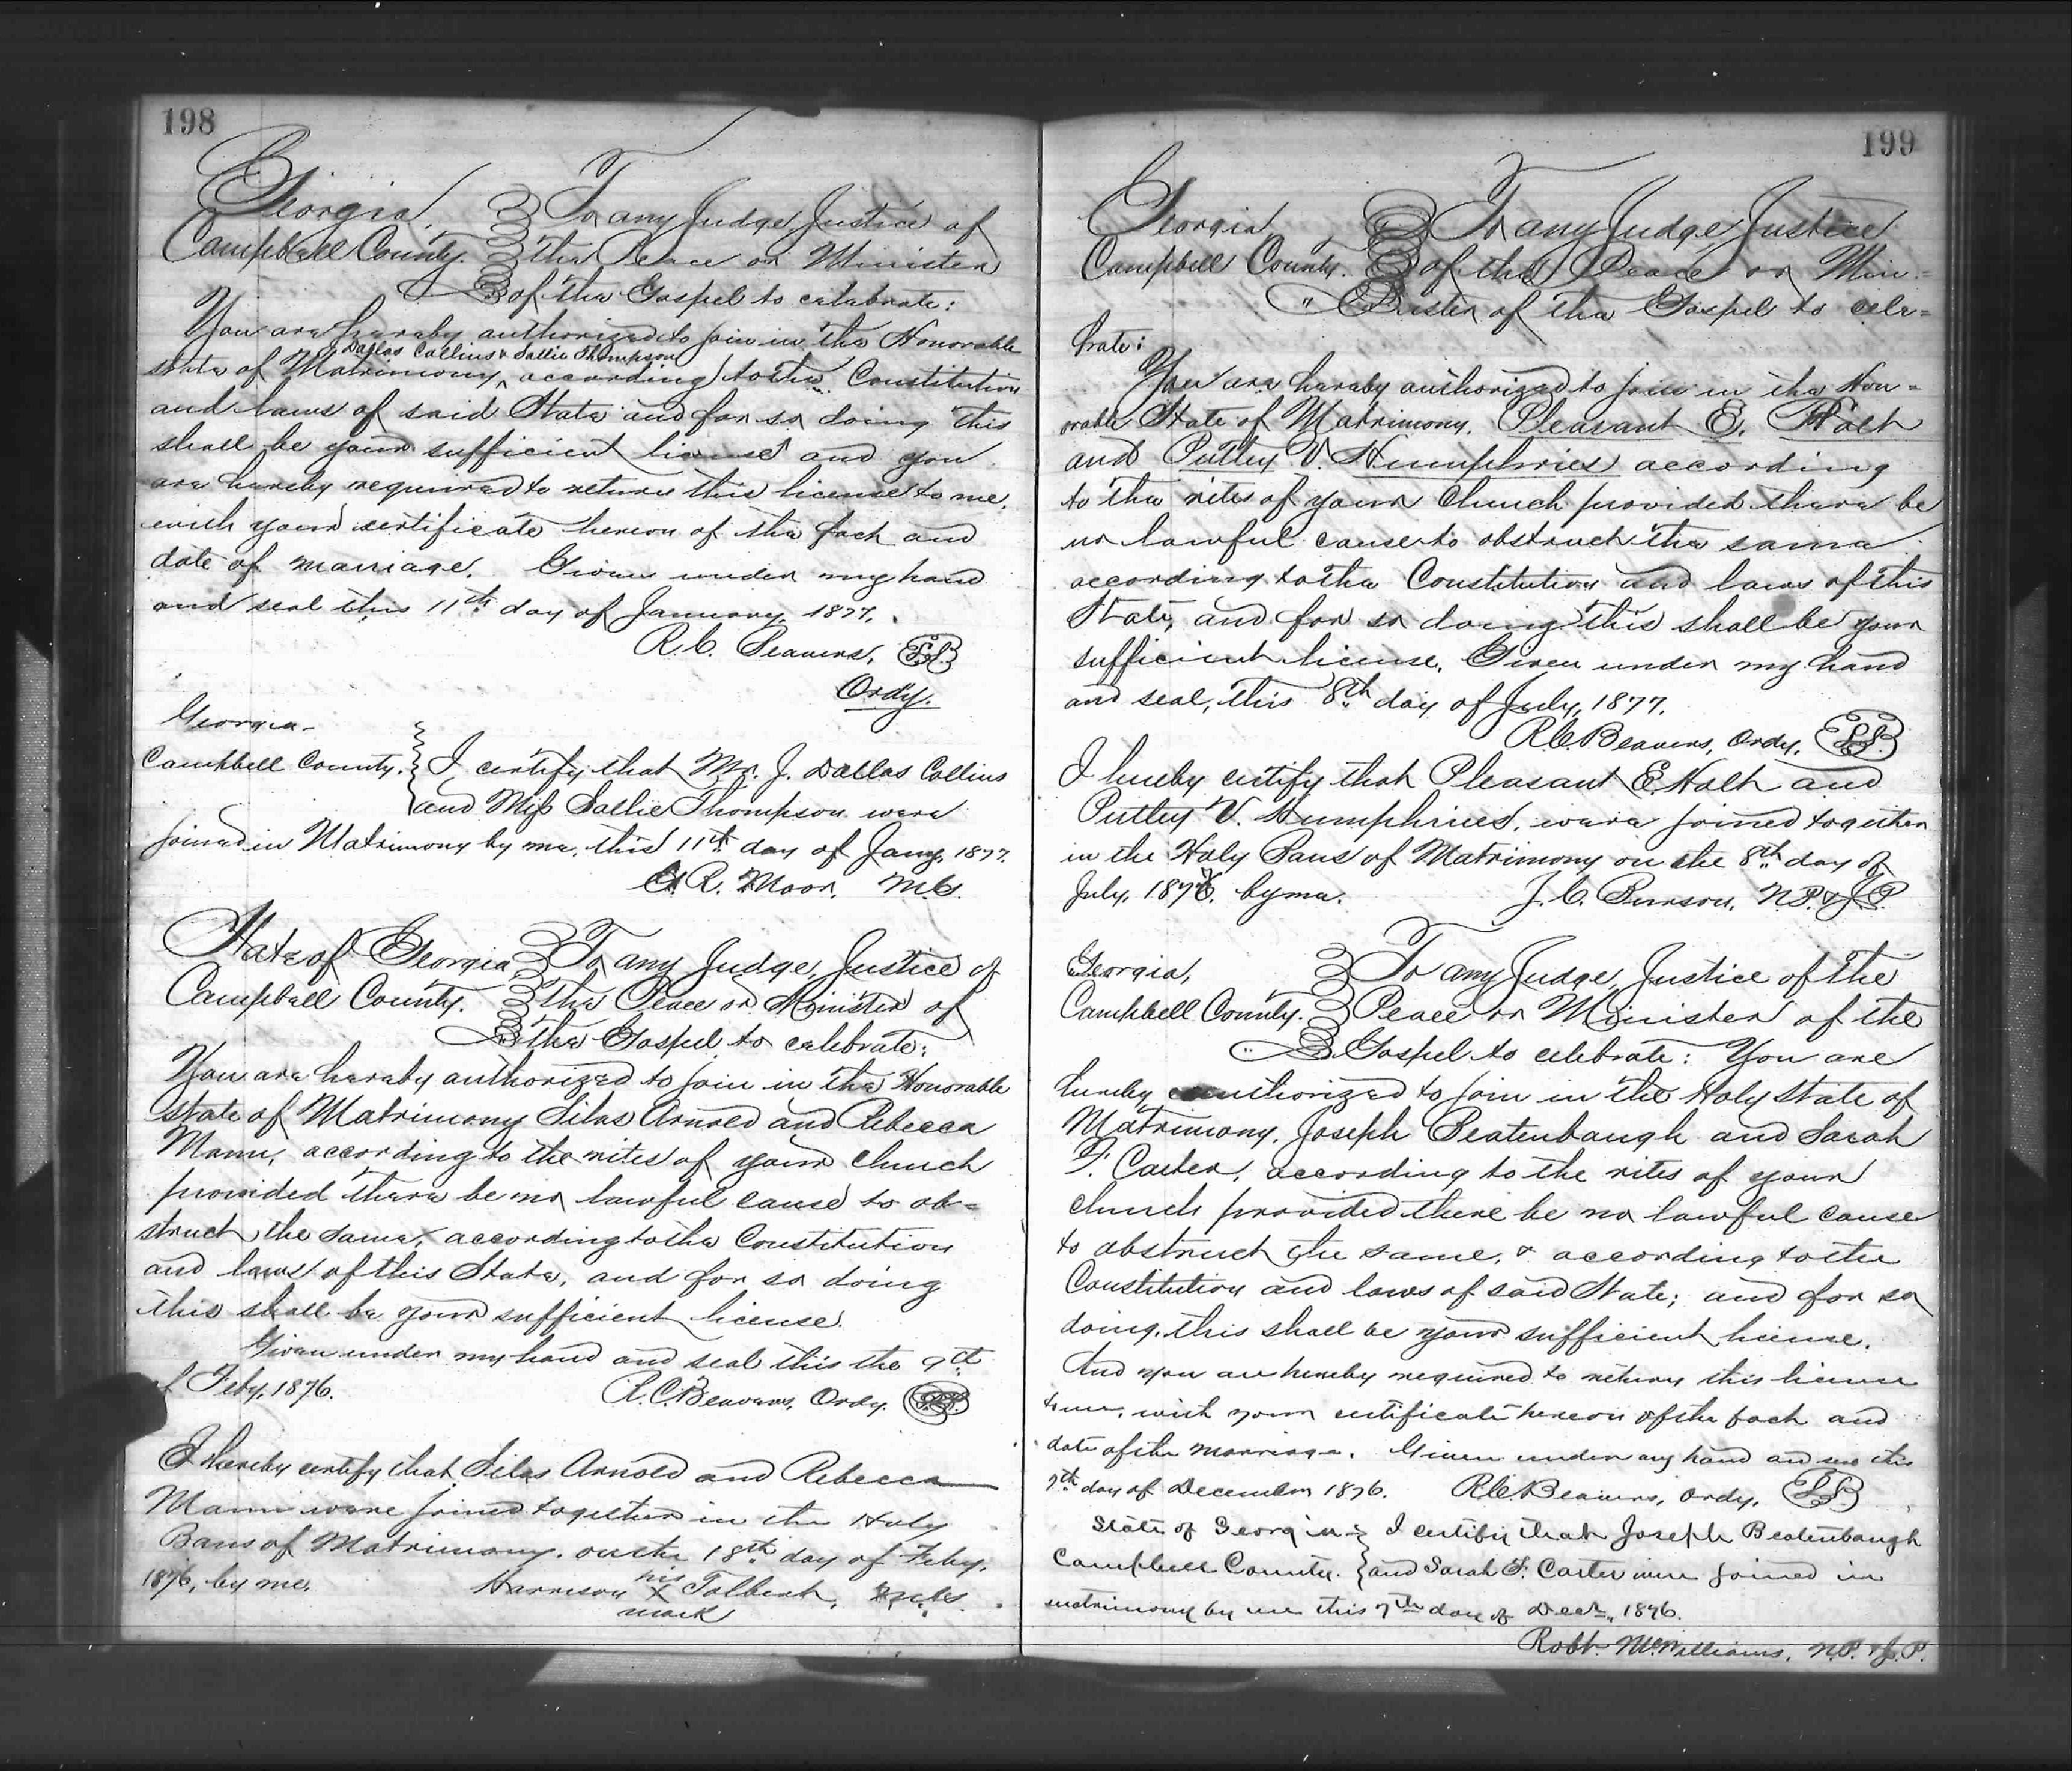 198
Georgia, To any Judge, Justice of
Campbell County. the Peace or Minister
of the Gospel to celebrate:
You are hereby authorized to join in the Honorable
Dallas Collins & Sallie Thompson
state of Matrimony, ^ according to the Constitution
and laws of said State and for so doing this
shall be your sufficient license and you
are hereby required to return this license to me,
with your certificate hereon of the fact and
date of marriage. Given under my hand
and seal this 11th day of January, 1877.
R. C. Beavers, L.S.
Ordy.
Georgia
Campbell County. I certify that Mr. J. Dallas Collins
and Miss Sallie Thompson were
joined in Matrimony by me, this 11th day of Jany, 1877.
R. Moor, M.G.
State of Georgia To any Judge, Justice of
Campbell County. the Peace or Minister of
the Gospel to celebrate:
You are hereby authorized to join in the Honorable
state of Matrimony Silas Arnold and Rebecca
Mann, according to the rites of your church
provided there be no lawful cause to ob-
struct the same, according to the Constitution
and laws of this State, and for so doing
this shall be your sufficient license.
Given under my hand and seal this the 9th
of Feby, 1876. R. C. Beavers, Ordy. L.S.
I hereby certify that Silas Arnold and Rebecca
Mann were joined together in the Holy
Bans of Matrimony, on the 18th day of Feby,
1876, by me, Harrison his X mark Tolbert,
199
Georgia, To any Judge, Justice
Campbell County. of the Peace or Min-
" ister of the Gospel to cele-
brate:
You are hereby authorized to join in the Hon-
orable State of Matrimony, Pleasant E. Holt
and Putley V. Humphries according
to the rites of your Church provided there be
no lawful cause to obstruct the same
according to the Constitution and laws of this
State, and for so doing this shall be your
sufficient license. Given under my hand
and seal, this 8th day of July, 1877.
R C Beavers, Ordy. L.S.
I hereby certify that Pleasant E. Holt and
Putley V. Humphries, were joined together
in the Holy Bans of Matrimony on the 8th day of
July, 187 by me. J. C. Burson, N.P. & J.P.
Georgia, To any Judge, Justice of the
Campbell County. Peace or Minister of the
" Gospel to celebrate: You are
hereby authorized to join in the Holy state of
Matrimony, Joseph Beatenbaugh and Sarah
F. Carter, according to the rites of your
church provided there be no lawful cause
to obstruct the same, & according to the
Constitution and laws of said State; and for so
doing, this shall be your sufficient license.
And you are hereby required to return this license
to me, with your certificate hereon of the fact and
date of the marriage. Given under my hand and seal this
7th day of December 1876. R.C. Beavers, Ordy, L.S.
State of Georgia I certify that Joseph Beatenbaugh
Campbell County. and Sarah F. Carter were joined in
matrimony by me this 7th day of Decr, 1876.
Robt. McWilliams, N.P. & J.P.